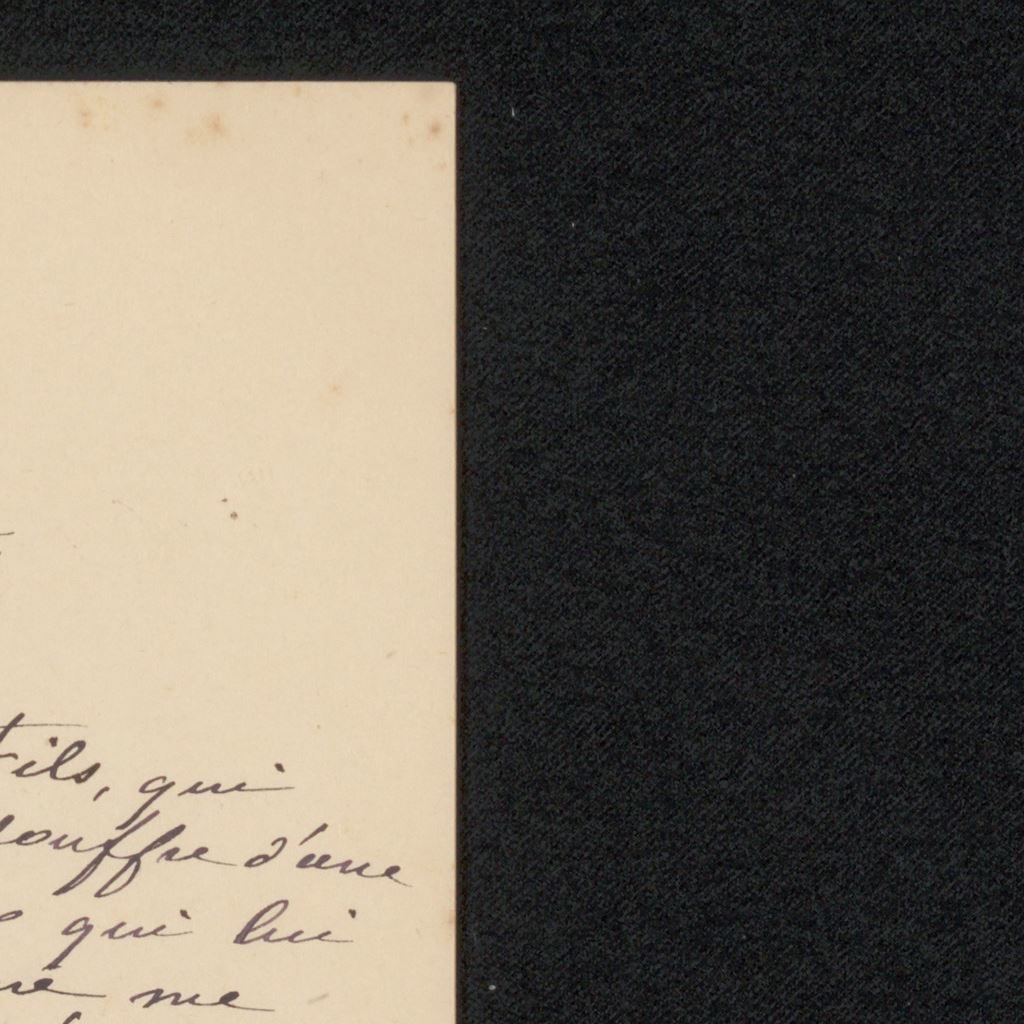 Fils, qui
souffre d'une
qui lui
me